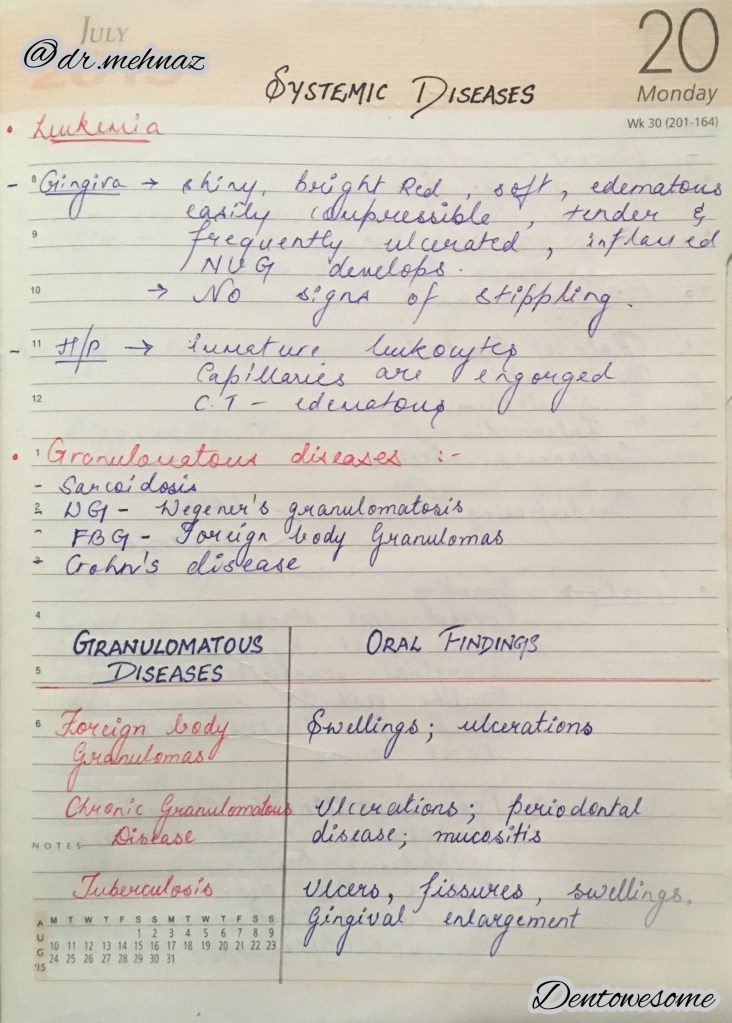 JULY
@dr.mehnaz
2015
20
Monday
Wk 30 (201-164)
SYSTEMIC DISEASES
• Leukemia
8
- Gingiva → shiny, bright Red, soft, edematous
easily compressible, tender &
9
frequently ulcerated, inflamed
NUG develops.
10
→ No signs of stippling.
11
- H/P → immature leukocytes
Capillaries are engorged
12
C.T - edematous
1
• Granulomatous diseases :-
- Sarcoidosis
2
- WG - Wegener's granulomatosis
- FBG - Foreign body Granulomas
3
- Crohn's disease
4
GRANULOMATOUS DISEASES
ORAL FINDINGS
5
6
Foreign body Granulomas
Swellings; ulcerations
Chronic Granulomatous Disease
Ulcerations; periodontal disease; mucositis
NOTES
Tuberculosis
Ulcers, fissures, swellings,
Gingival enlargement
AUG '15
M T W T F S S M T W T F S S
1 2 3 4 5 6 7 8 9
10 11 12 13 14 15 16 17 18 19 20 21 22 23
24 25 26 27 28 29 30 31
Dentowesome